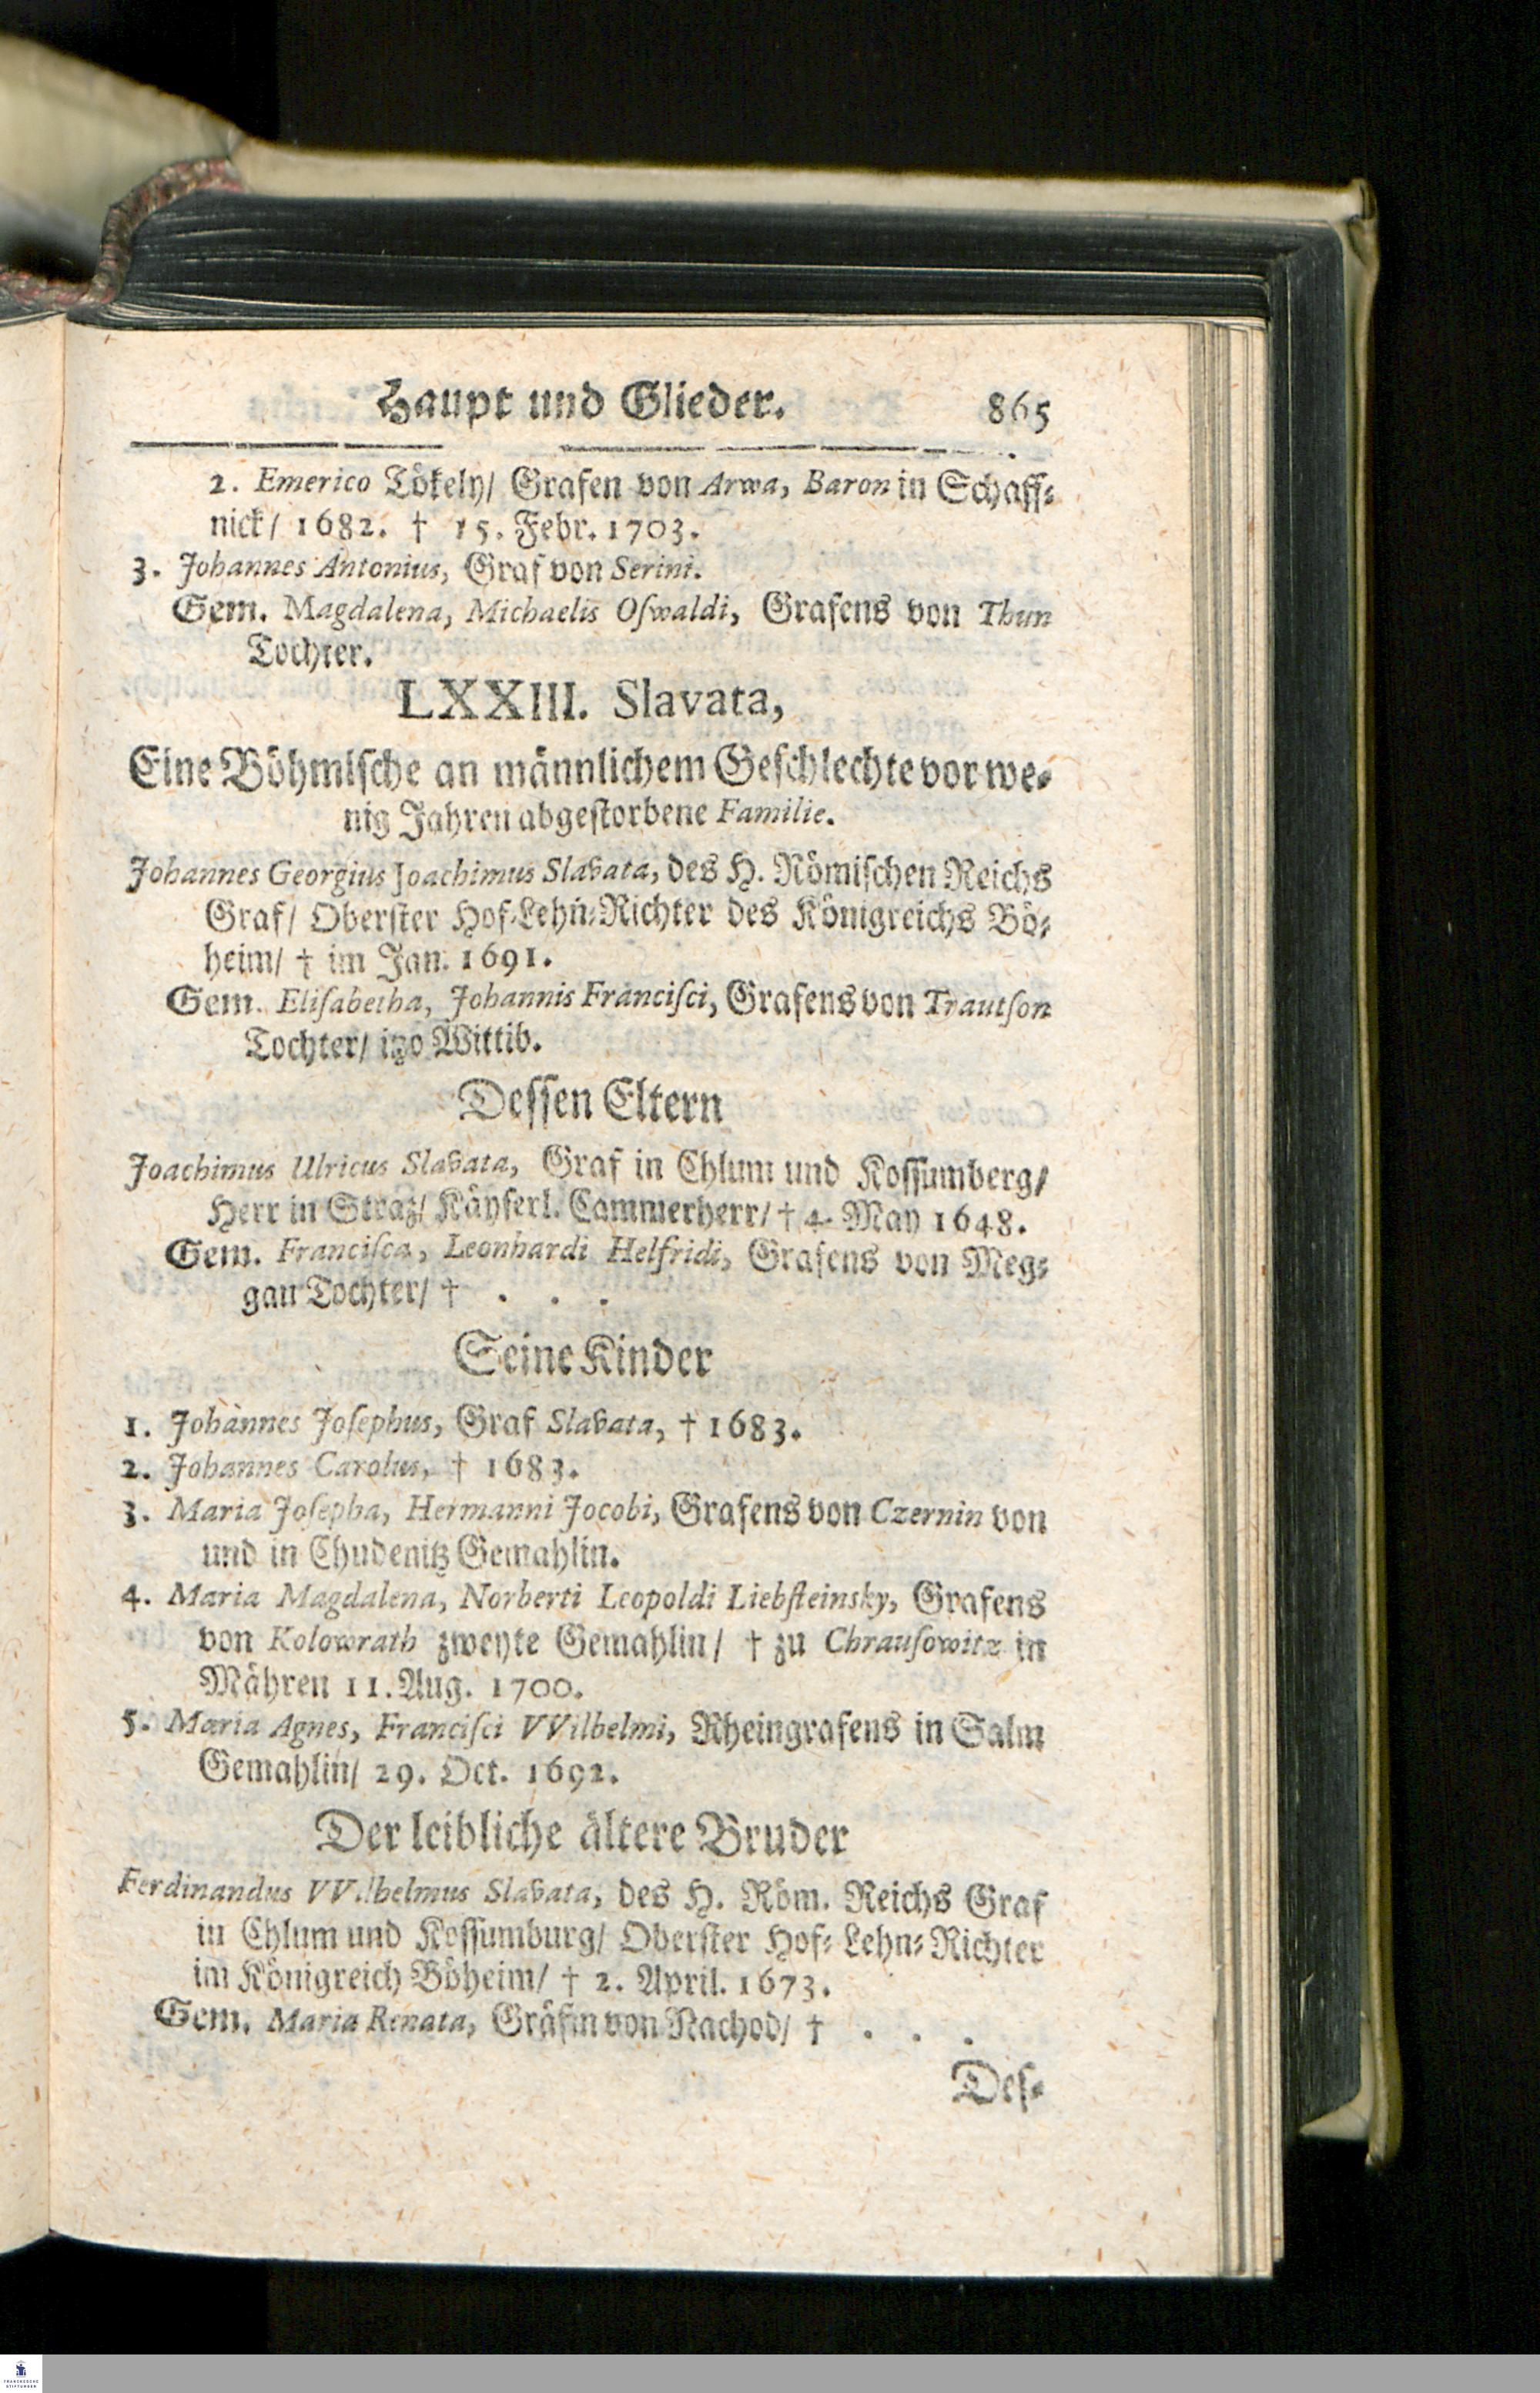 Haupt und Glieder. 865
2. Emerico Tökely/ Grafen von Arwa, Baron in Schaff-
nick/ 1682. † 15. Febr. 1703.
3. Johannes Antonius, Graf von Serini.
Gem. Magdalena, Michaelis Oſwaldi, Grafens von Thun
Tochter.
LXXIII. Slavata,
Eine Böhmiſche an männlichem Geſchlechte vor we-
nig Jahren abgeſtorbene Familie.
Johannes Georgius Joachimus Slavata, des H. Römiſchen Reichs
Graf/ Oberſter Hof-Lehn-Richter des Königreichs Bö-
heim/ † im Jan. 1691.
Gem. Eliſabetha, Johannis Franciſci, Grafens von Trautſon
Tochter/ itzo Wittib.
Deſſen Eltern
Joachimus Ulricus Slavata, Graf in Chlum und Koſſumberg/
Herr in Straz/ Käyſerl. Cammerherr/ † 4. May 1648.
Gem. Franciſca, Leonhardi Helfridi, Grafens von Meg-
gau Tochter/ † . . .
Seine Kinder
1. Johannes Joſephus, Graf Slavata, † 1683.
2. Johannes Carolus, † 1683.
3. Maria Joſepha, Hermanni Jocobi, Grafens von Czernin von
und in Chudenitz Gemahlin.
4. Maria Magdalena, Norberti Leopoldi Liebſteinsky, Grafens
von Kolowrath zweyte Gemahlin/ † zu Chrauſowitz in
Mähren 11. Aug. 1700.
5. Maria Agnes, Franciſci VVilhelmi, Rheingrafens in Salm
Gemahlin/ 29. Oct. 1692.
Der leibliche ältere Bruder
Ferdinandus VVilhelmus Slavata, des H. Röm. Reichs Graf
in Chlum und Koſſumburg/ Oberſter Hof-Lehn-Richter
im Königreich Böheim/ † 2. April. 1673.
Gem. Maria Renata, Gräfin von Nachod/ † . . .
Deſ-
FRANCKESCHE
STIFTUNGEN